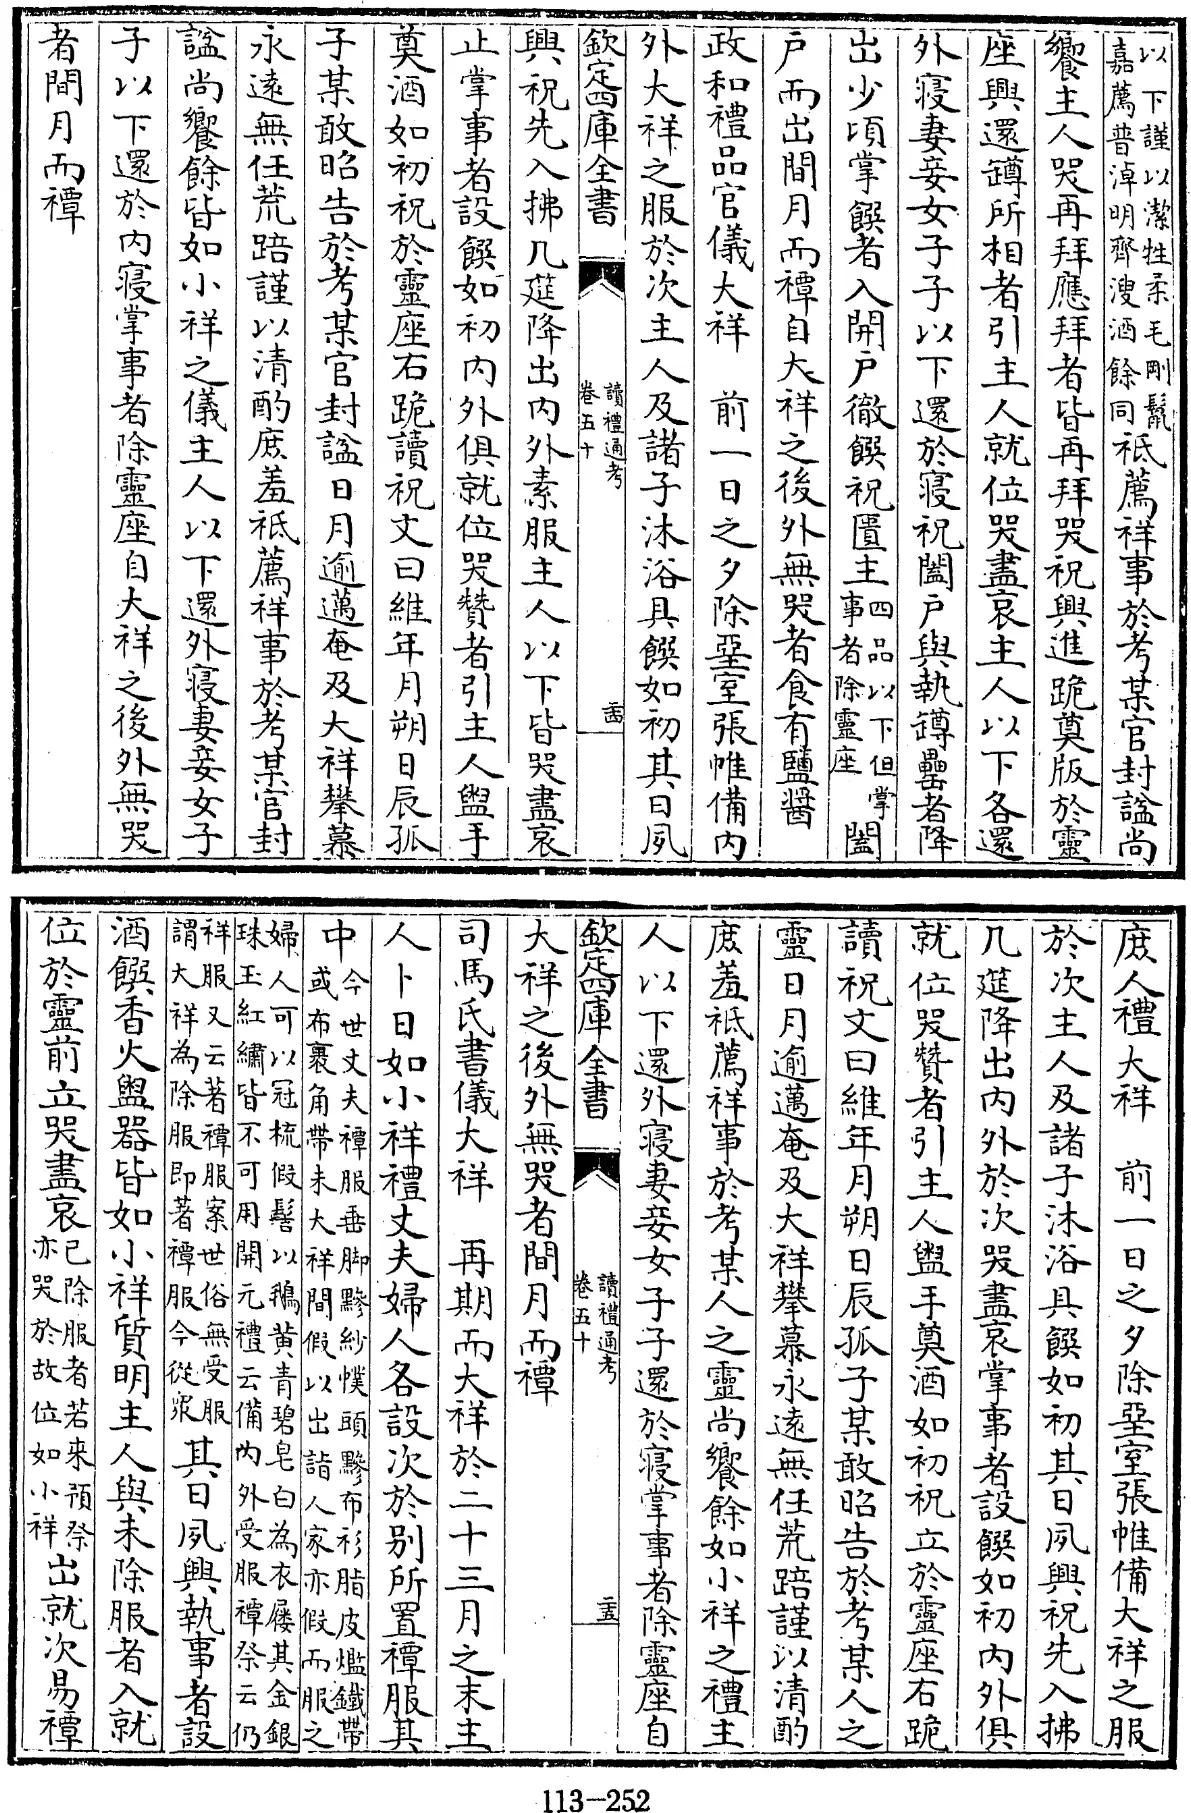 以下謹以潔牲柔毛剛鬣
嘉薦普淖明齊溲酒餘同祗薦祥事於考某官封諡尚
饗主人哭再拜應拜者皆再拜哭祝興進跪奠版於靈
座興還罇所相者引主人就位哭盡哀主人以下各還
外寢妻妾女子子以下還於寢祝闔戶與執罇罍者降
出少頃掌饌者入開戶徹饌祝匱主四品以下但掌事者除靈座闔
戶而出間月而禫自大祥之後外無哭者食有鹽醬
政和禮品官儀大祥　前一日之夕除堊室張帷備內
外大祥之服於次主人及諸子沐浴具饌如初其日夙
欽定四庫全書　讀禮通考卷五十　二十四
興祝先入拂几筵降出內外素服主人以下皆哭盡哀
止掌事者設饌如初內外俱就位哭贊者引主人盥手
奠酒如初祝於靈座右跪讀祝文曰維年月朔日辰孤
子某敢昭告於考某官封諡日月逾邁奄及大祥攀慕
永遠無任荒踣謹以清酌庶羞祗薦祥事於考某官封
諡尚饗餘皆如小祥之儀主人以下還外寢妻妾女子
子以下還於內寢掌事者除靈座自大祥之後外無哭
者間月而禫
庶人禮大祥　前一日之夕除堊室張帷備大祥之服
於次主人及諸子沐浴具饌如初其日夙興祝先入拂
几筵降出內外於次哭盡哀掌事者設饌如初內外俱
就位哭贊者引主人盥手奠酒如初祝立於靈座右跪
讀祝文曰維年月朔日辰孤子某敢昭告於考某人之
靈日月逾邁奄及大祥攀慕永遠無任荒踣謹以清酌
庶羞祗薦祥事於考某人之靈尚饗餘如小祥之禮主
人以下還外寢妻妾女子子還於寢掌事者除靈座自
欽定四庫全書　讀禮通考卷五十　二十五
大祥之後外無哭者間月而禫
司馬氏書儀大祥　再期而大祥於二十三月之末主
人卜日如小祥禮丈夫婦人各設次於別所置禫服其
中今世丈夫禫服垂脚黲紗幞頭黲布衫脂皮爁鐵帶
或布裹角帶未大祥間假以出詣人家亦假而服之
婦人可以冠梳假髻以鵝黃青碧皂白為衣屨其金銀
珠玉紅繡皆不可用開元禮云備內外受服禫祭云仍
祥服又云著禫服案世俗無受服
謂大祥為除服即著禫服今從眾其日夙興執事者設
酒饌香火盥器皆如小祥質明主人與未除服者入就
位於靈前立哭盡哀已除服者若來預祭亦哭於故位如小祥出就次易禫
113-252